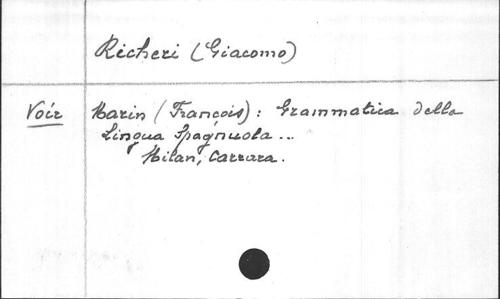 Richeri (Giacomo)
Voir Marin (François): Grammatica della
Lingua Spagnuola ...
Milan, Carrara.